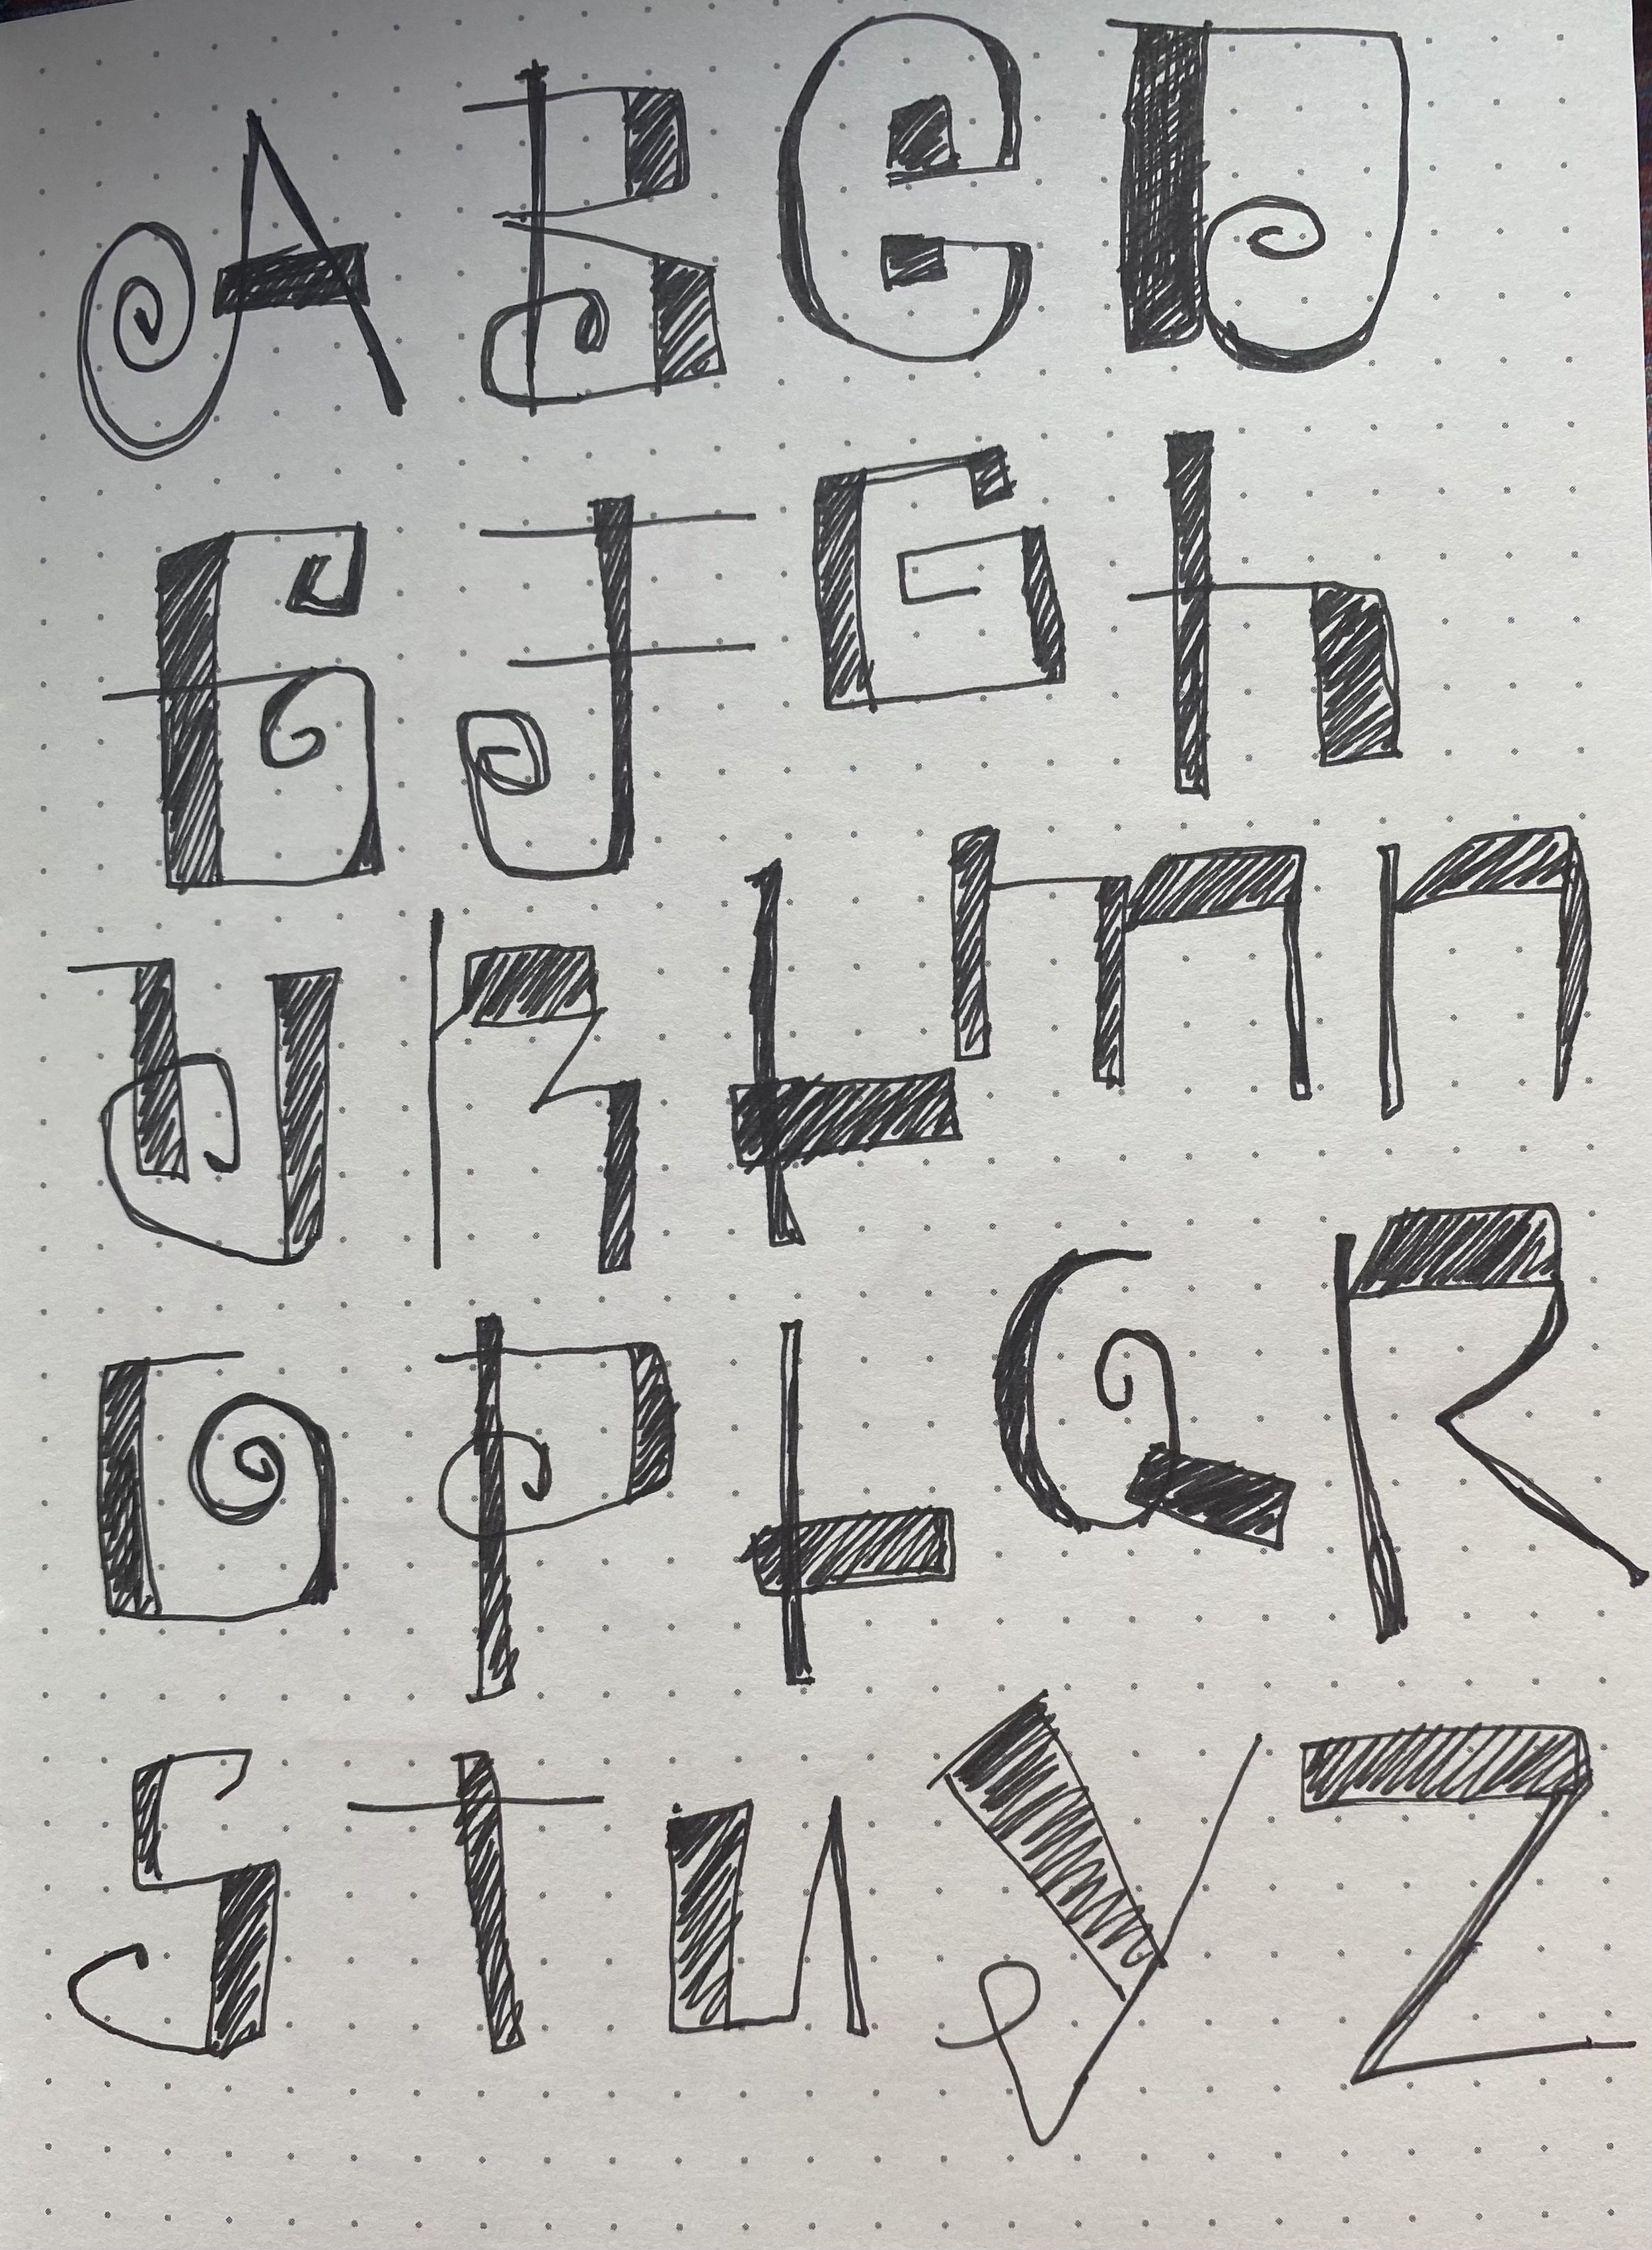 A B C D
E F G h
J K L m n
O P L Q R
S T u y Z